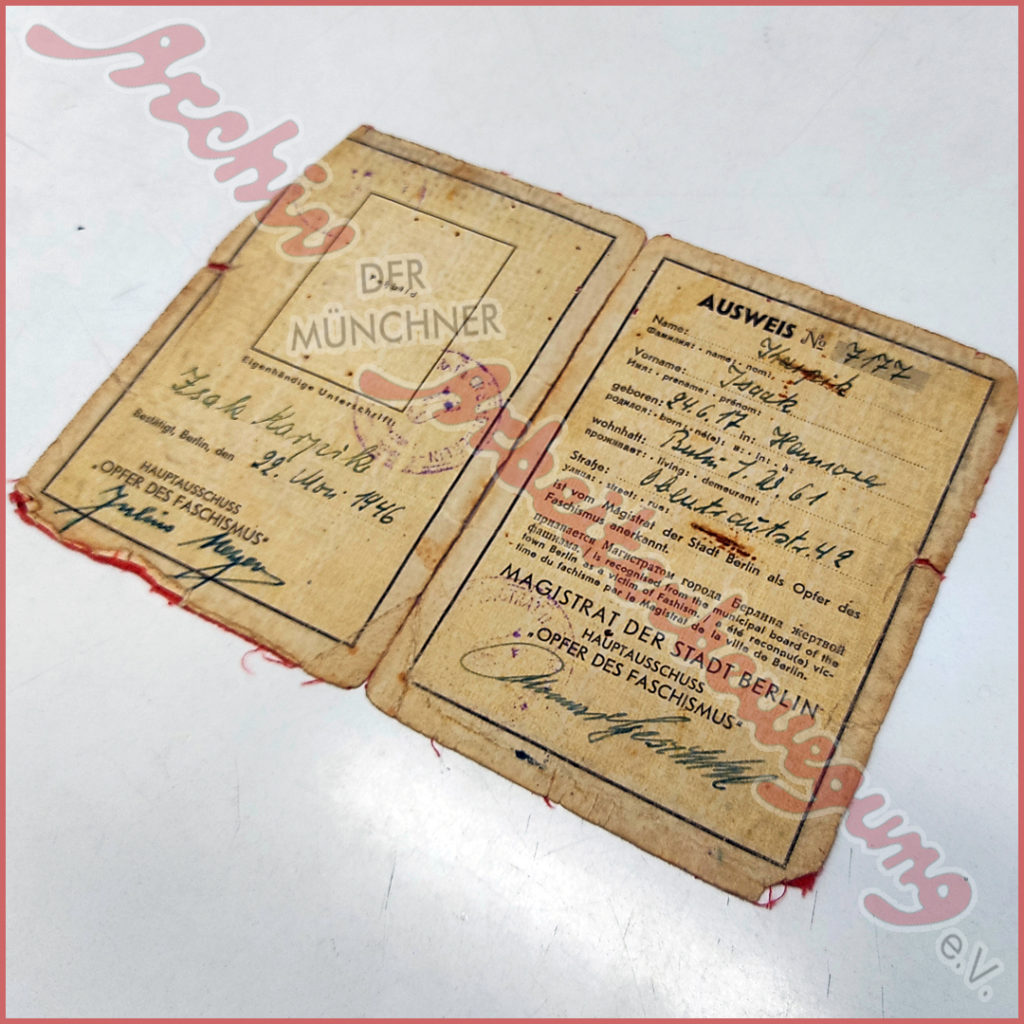 Archiv
DER
MÜNCHNER
Arbeiterbewegung
e.V.
Passbild
Eigenhändige Unterschrift
Isak Karpik
Bestätigt, Berlin, den 22. Nov. 1946
HAUPTAUSSCHUSS
„OPFER DES FASCHISMUS"
Julius Meyer
AUSWEIS No 7177
Name: Karpik
Фамилия: · name: · nom:
Vorname: Isaak
Имя: · prename: · prénom:
geboren: 24.6.17 in: Hannover
родился: · born: · né(e): в: · in: · à:
wohnhaft: Berlin S.W. 61
проживает: · living: · demeurant:
Straße: Obentrautstr. 42
улица: · street: · rue:
ist vom Magistrat der Stadt Berlin als Opfer des
Faschismus anerkannt.
признается Магистратом города Берлина жертвой
фашизма. / is recognised from the municipal board of the
town Berlin as a victim of Fashism. / a été reconnu(e) vic-
time du fachisme par le Magistrat de la ville de Berlin.
MAGISTRAT DER STADT BERLIN
HAUPTAUSSCHUSS
„OPFER DES FASCHISMUS"